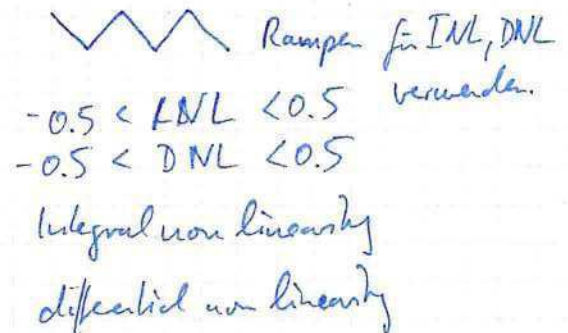 Rampen für INL, DNL
verwenden.
-0.5 < INL < 0.5
-0.5 < DNL < 0.5
Integral non linearity
differential non linearity